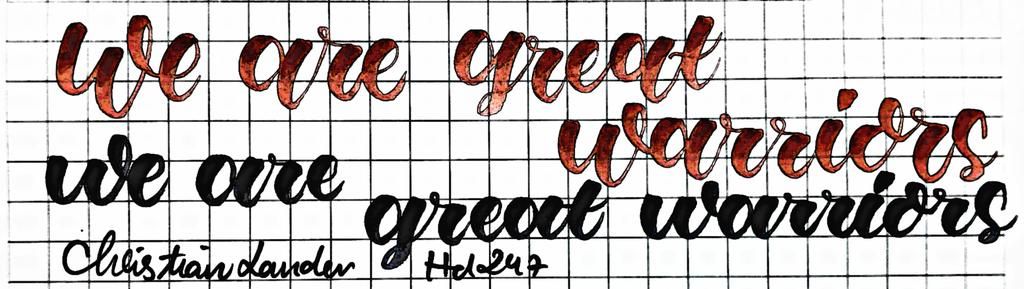 we are great
warriors
we are
great warriors
Christian Lander Hd247